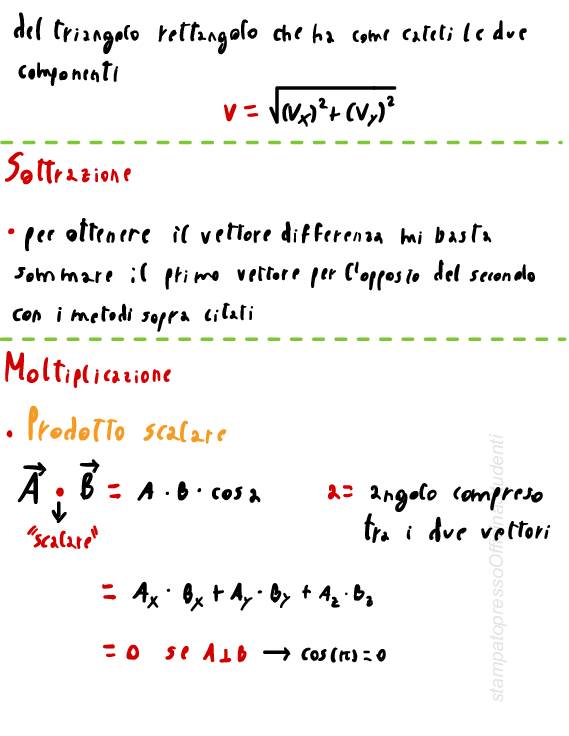 del triangolo rettangolo che ha come cateti le due
componenti
v = √(Vx)² + (Vy)²
Sottrazione
• per ottenere il vettore differenza mi basta
sommare il primo vettore per l'opposto del secondo
con i metodi sopra citati
Moltiplicazione
• Prodotto scalare
A⃗ • B⃗ = A · B · cos a a = angolo compreso
"scalare" tra i due vettori
= Ax · Bx + Ay · By + Az · Bz
= 0 se A⊥B → cos(π) = 0
stampatopressoOfficinaStudenti